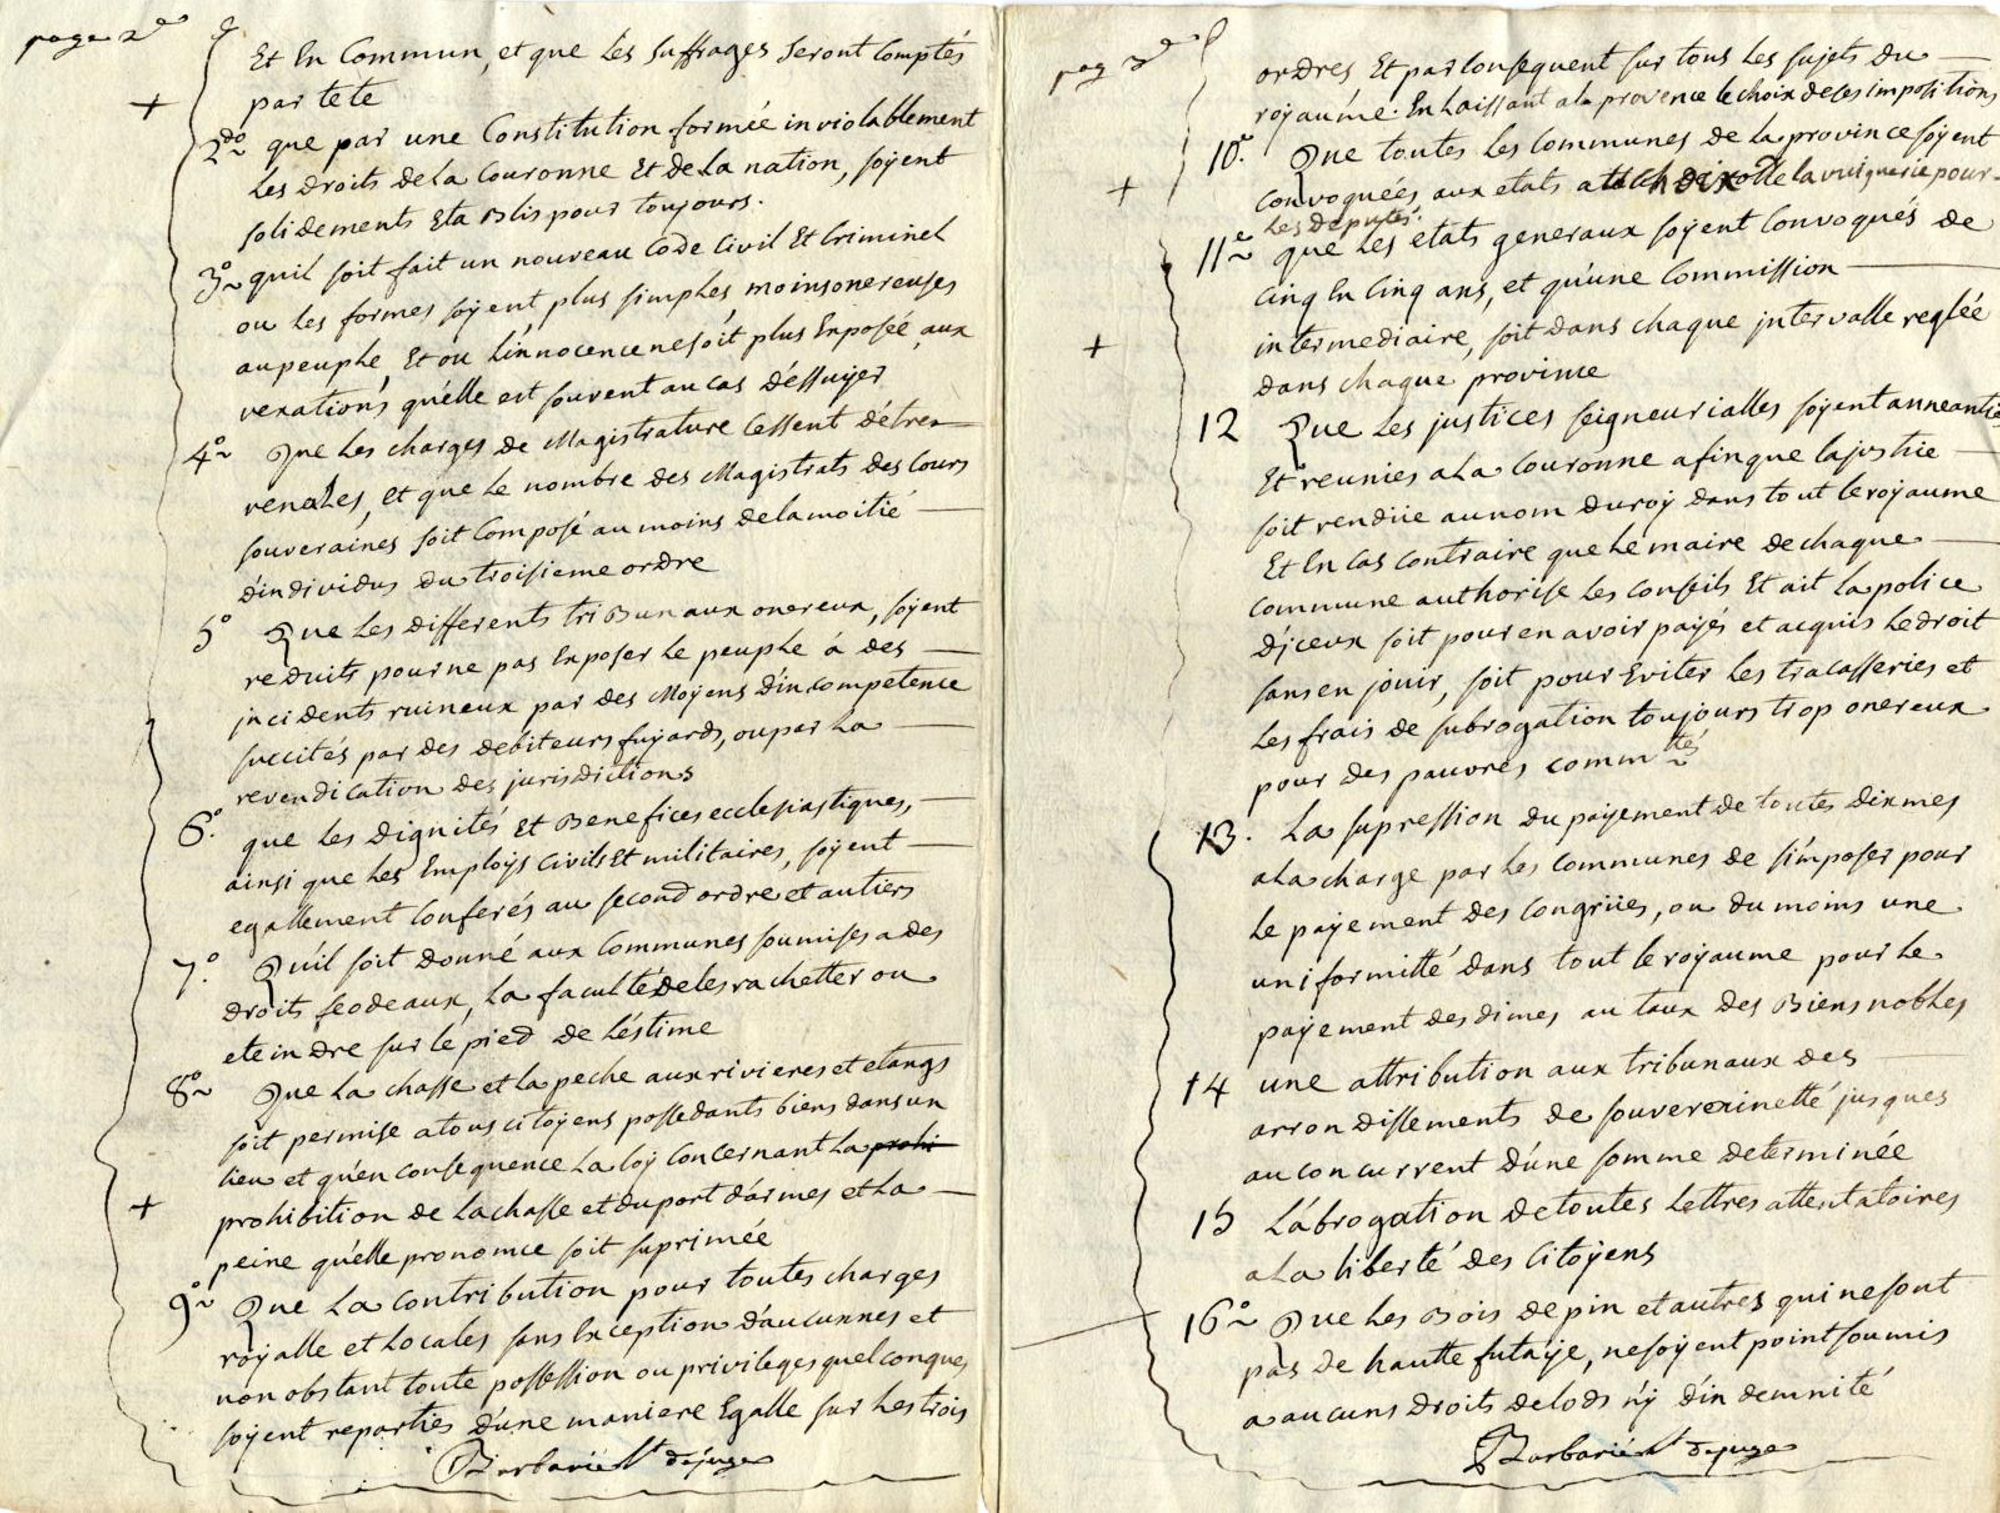 page 2e
Et En Commun, et que Les suffrages seront Comptés
par tete
2do que par une Constitution formée inviolablement
Les droits de La Couronne Et de La nation, soyent
solidements Etablis pour toujours.
3o quil soit fait un nouveau Code Civil Et Criminel
ou Les formes soyent plus simples, moins onereuses
au peuple, Et ou L'innocence ne soit plus Exposée aux
vexations qu'elle est souvent au cas d'essuyer
4o Que Les charges de Magistrature Cessent d'être
venales, et que Le nombre des Magistrats des Cours
souveraines soit Composé au moins de la moitié
d'individus du troisieme ordre
5o Que Les differents tribunaux onereux, soyent
reduits pour ne pas Exposer Le peuple á des
jncidents ruineux par des Moyens d'incompetence
succités par des debiteurs fuyards, ou par La
revendication des jurisdictions
6o. que Les dignités Et Benefices ecclesiastiques,
ainsi que Les Employs Civils Et militaires, soyent
egallement Conferés au second ordre et au tiers
7o. Qu'il soit donné aux Communes soumises a des
droits feodeaux, La faculté de les rachetter ou
eteindre sur le pied de L'estime
8o Que La chasse et La peche aux rivieres et etangs
soit permise a tous citoyens possedants biens dans un
lieu et qu'en consequence La loy Concernant La prohi
prohibition de La chasse et du port d'armes et La
peine qu'elle prononce soit suprimée
9o Que La Contribution pour toutes charges
royalle et Locales sans Exception d'aucunnes et
non obstant toute possession ou privileges quelconques
soyent reparties d'une maniere Egalle sur Les trois
Barbarié Lt de juge
pag 3e
ordres Et par Consequent sur tous Les sujets du
royaume. En Laissant a la provence le choix de ces impositions
10o. Que toutes Les Communes de la province soyent
Convoquées aux etats de la vuiguerie pour
Les deputés.
11e que Les etats generaux soyent Convoqués de
Cinq En Cinq ans, et qu'une Commission
intermediaire, soit dans chaque jntervalle reglée
dans chaque province
12 Que Les justices seigneurialles soyent anneanties
Et reunies a La Couronne afin que la justice
soit rendüe au nom du roy dans tout le royaume
Et En Cas contraire que Le maire de chaque
commune authorise Les Conseils Et ait La police
d'jceux soit pour en avoir payés et acquis Le droit
sans en jouir, soit pour Eviter Les tracasseries et
Les frais de subrogation toujours trop onereux
pour des pauvres commtés
13. La supression du payement de toutes dixmes
a La charge par Les Communes de s'imposer pour
Le payement des Congrües, ou du moins une
uniformitté dans tout le royaume pour Le
payement des dimes au taux des Biens nobles
14 une attribution aux tribunaux des
arrondissements de souvereinetté jusques
au concurrent d'une somme determinée
15 L'abrogation de toutes Lettres attentatoires
a La liberté des Citoyens
16o Que Les Bois de pin et autres qui ne sont
pas de hautte futaye, ne soyent point soumis
a aucuns droits de lods n'y d'indemnité
Barbarié Lt de juge